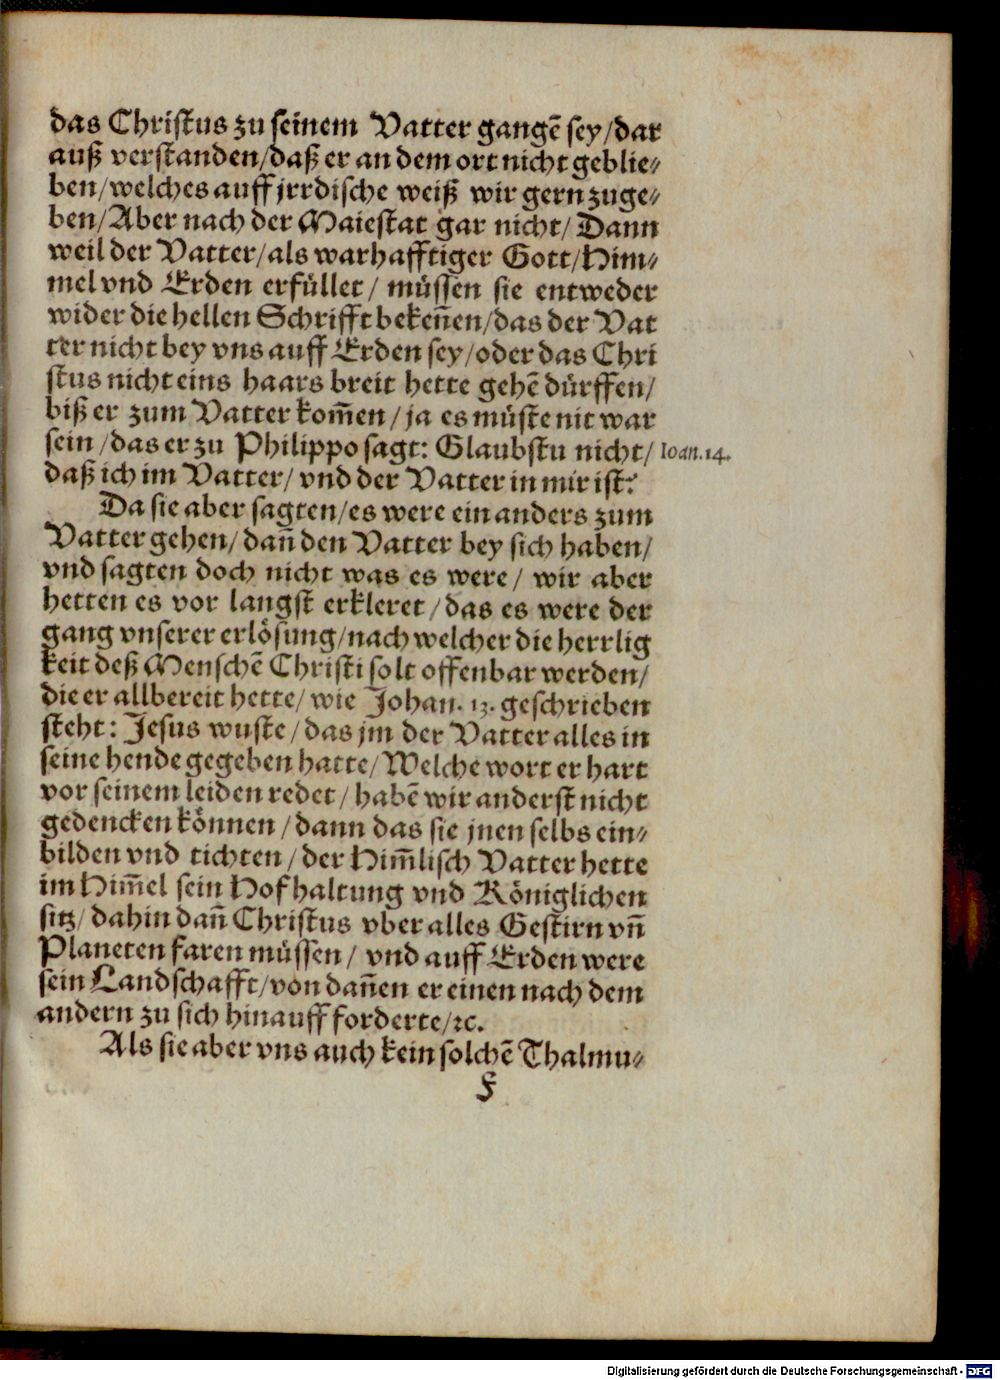 das Christus zu seinem Vatter gangẽ sey/dar
auß verstanden/daß er an dem ort nicht geblie⸗
ben/welches auff jrrdische weiß wir gern zuge⸗
ben/Aber nach der Maiestat gar nicht/Dann
weil der Vatter/als warhafftiger Gott/Him⸗
mel vnd Erden erfüllet/ müssen sie entweder
wider die hellen Schrifft bekeñen/das der Vat
ter nicht bey vns auff Erden sey/oder das Chri
stus nicht eins haars breit hette gehẽ dürffen/
biß er zum Vatter kom̃en/ja es müste nit war
sein/das er zu Philippo sagt: Glaubstu nicht/ Ioan.14.
daß ich im Vatter/vnd der Vatter in mir ist?
Da sie aber sagten/es were ein anders zum
Vatter gehen/dañ den Vatter bey sich haben/
vnd sagten doch nicht was es were/ wir aber
hetten es vor langst erkleret/das es were der
gang vnserer erlösung/nach welcher die herrlig
keit deß Menschẽ Christi solt offenbar werden/
die er allbereit hette/wie Johan. 13. geschrieben
steht: Jesus wuste/das jm der Vatter alles in
seine hende gegeben hatte/Welche wort er hart
vor seinem leiden redet/habẽ wir anderst nicht
gedencken können/dann das sie jnen selbs ein⸗
bilden vnd tichten/der Him̃lisch Vatter hette
im Him̃el sein Hofhaltung vnd Königlichen
sitz/dahin dañ Christus vber alles Gestirn vñ
Planeten faren müssen/ vnd auff Erden were
sein Landschafft/von dañen er einen nach dem
andern zu sich hinauff forderte/ꝛc.
Als sie aber vns auch kein solchẽ Thalmu⸗
F
Digitalisierung gefördert durch die Deutsche Forschungsgemeinschaft - DFG